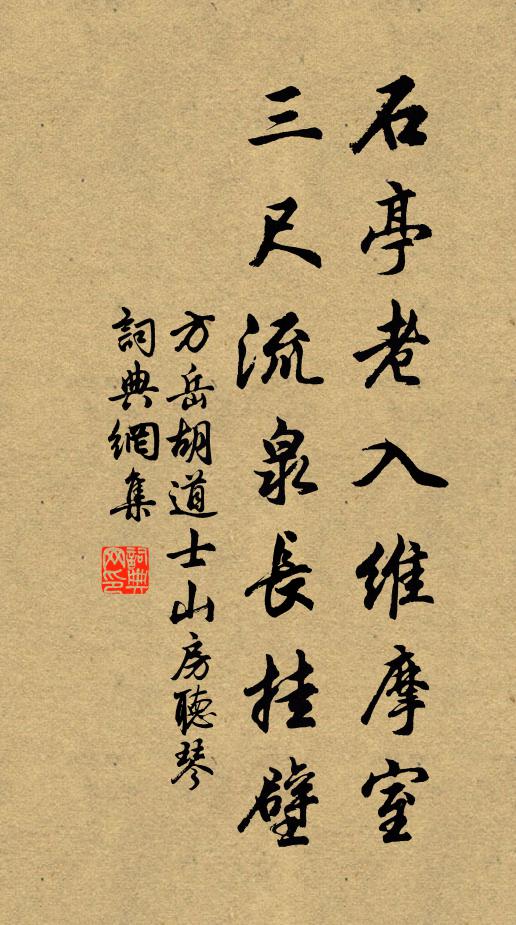 石亭老入維摩室
三尺流泉長挂壁
方岳胡道士山房聽琴
詞典網集
詞典網印